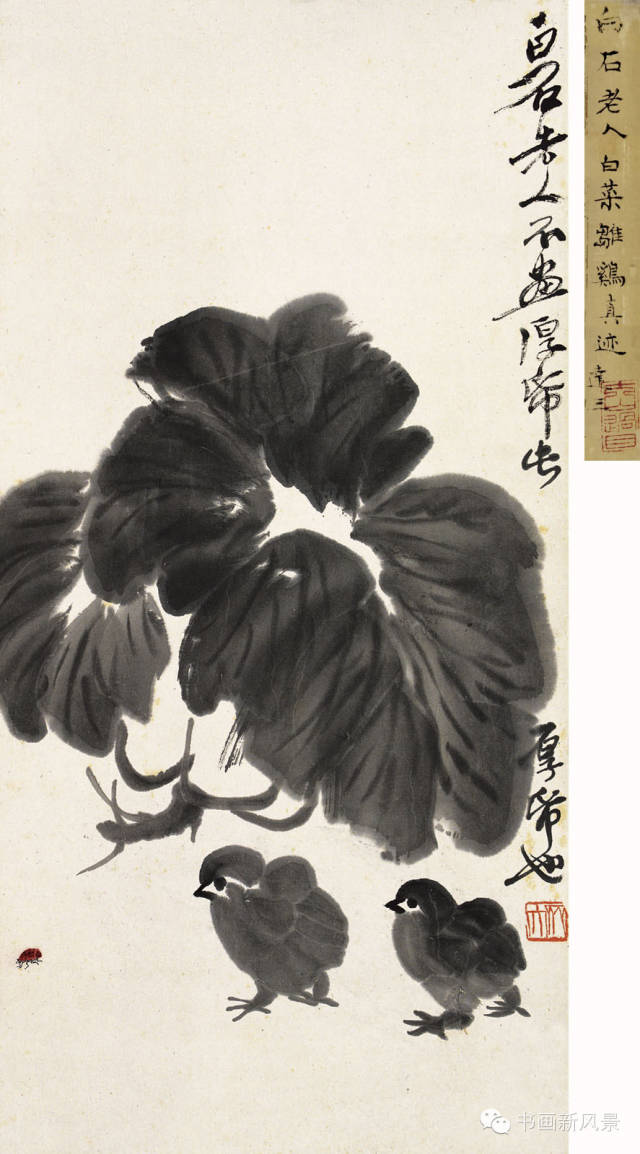 白石老人不畫厚帋此
厚帋也
白石老人白菜雛鷄真迹
书画新风景